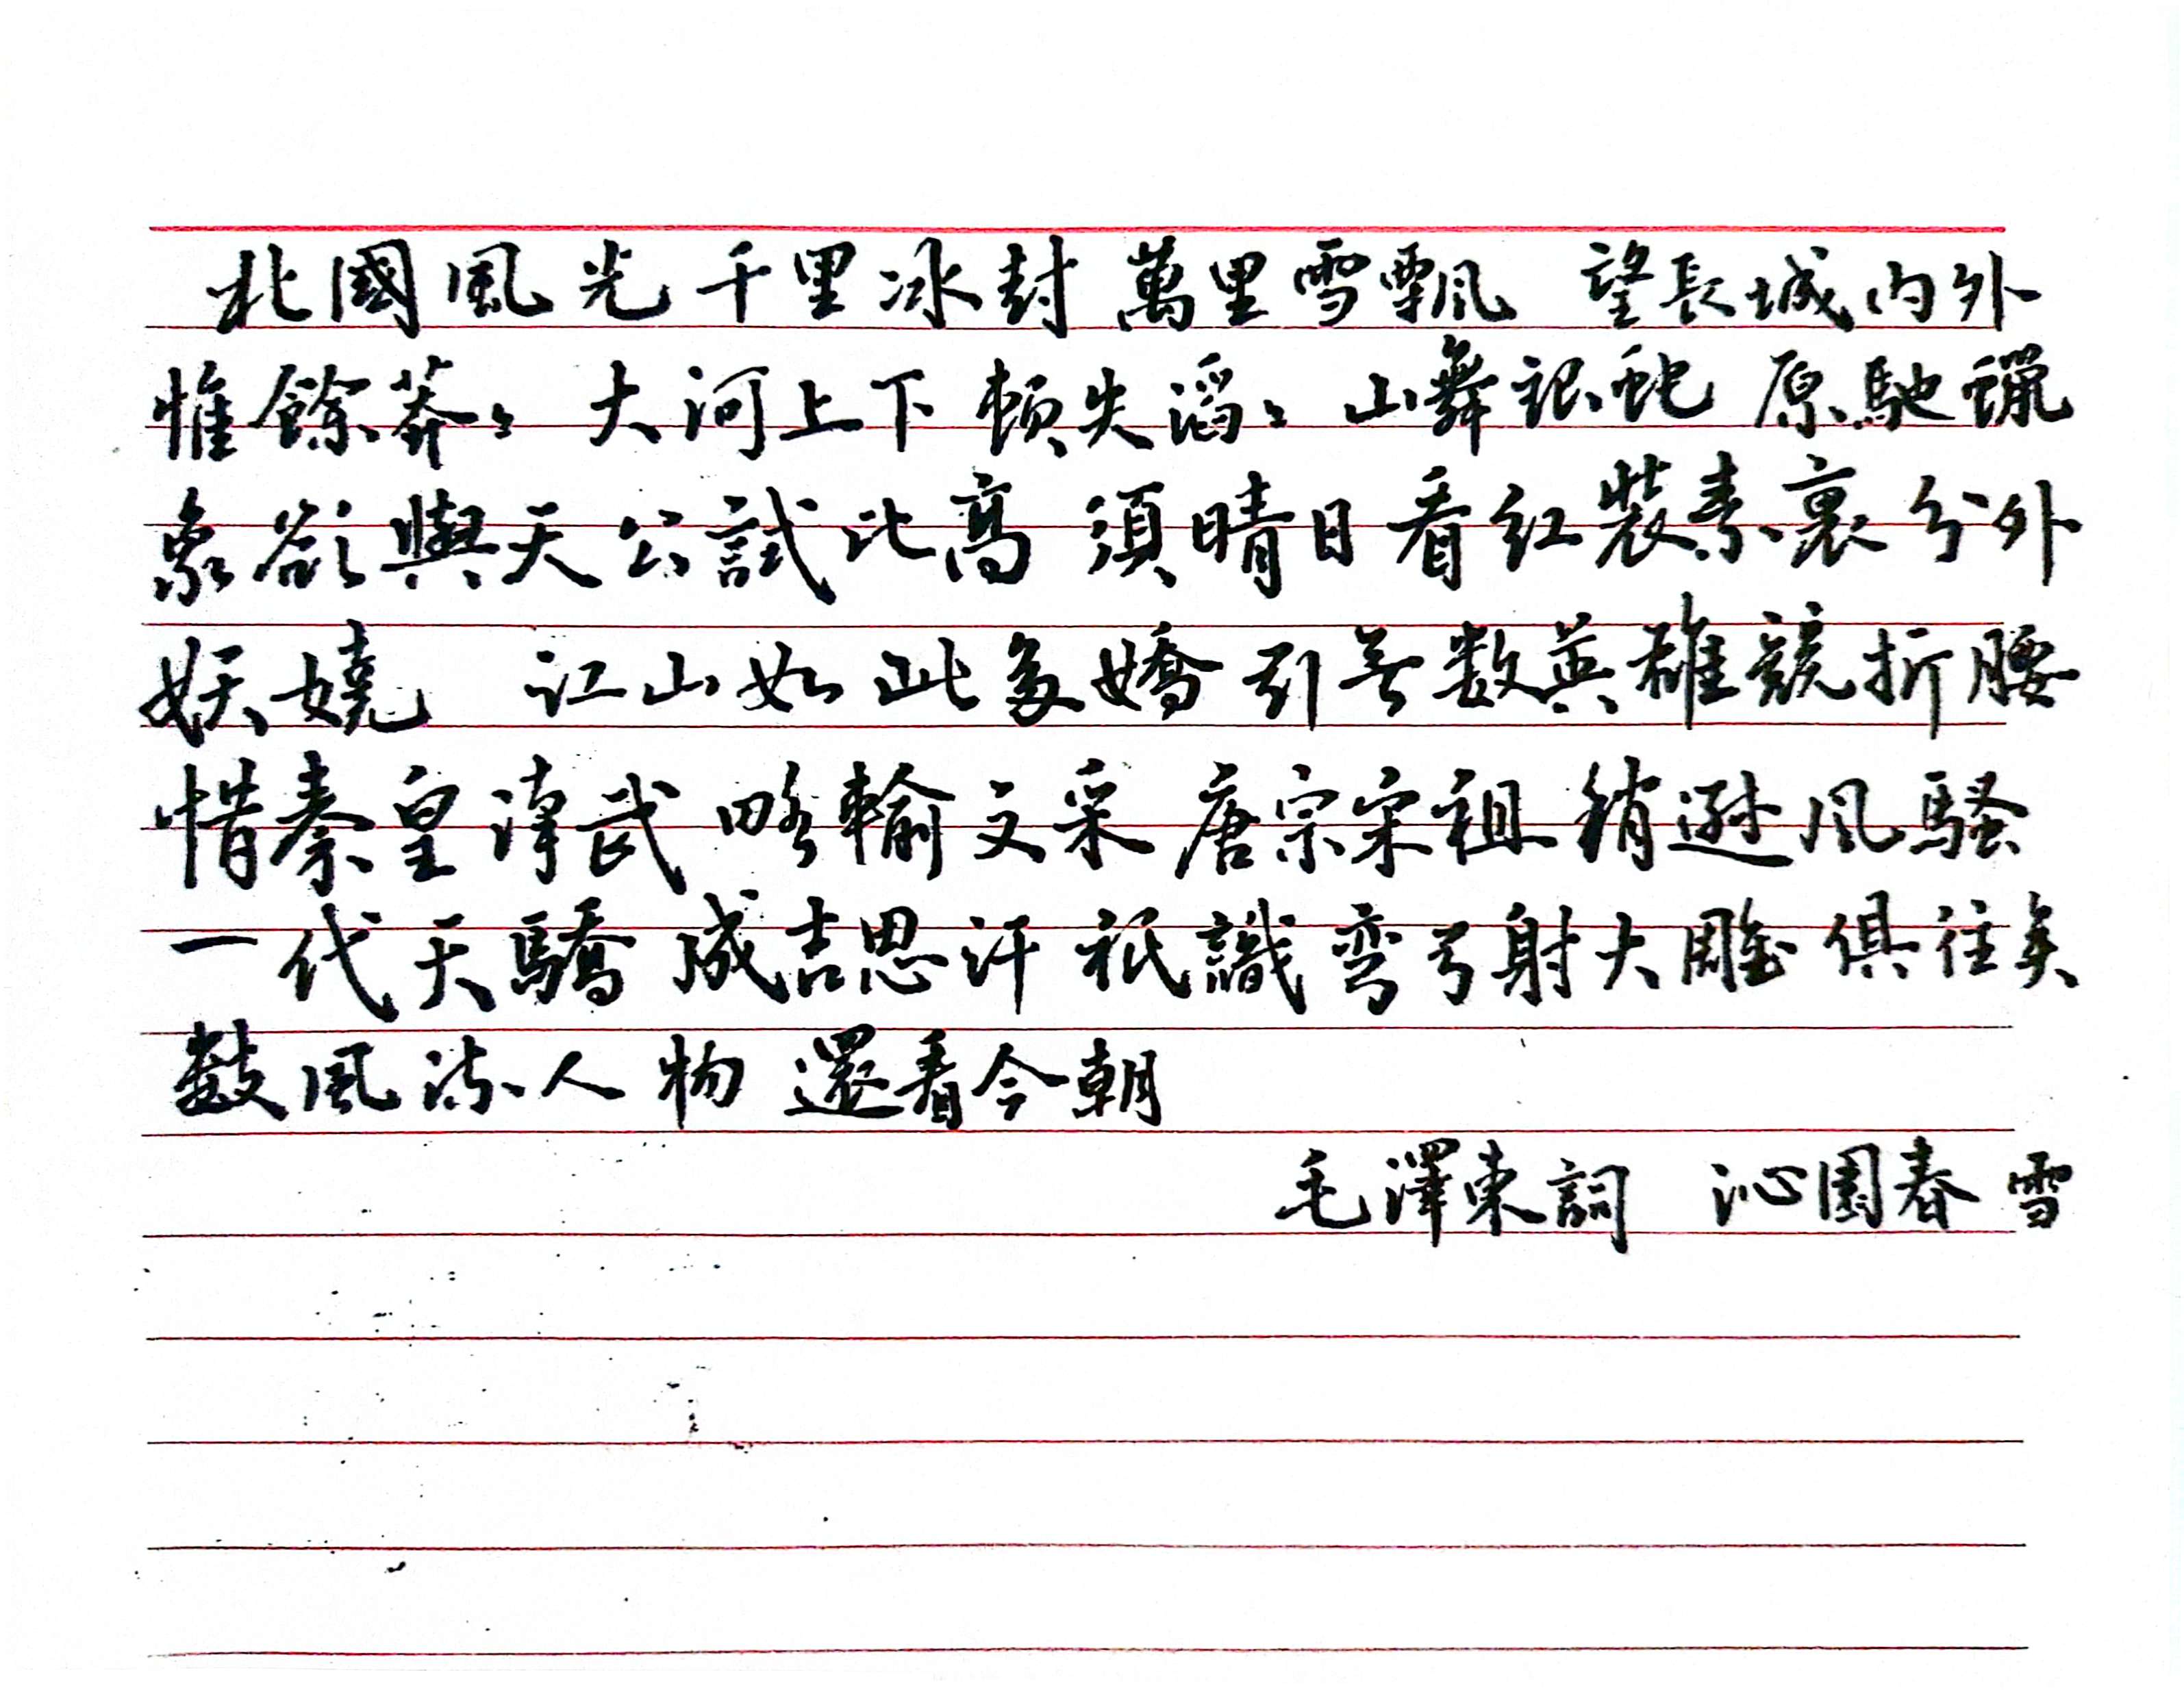 北國風光千里冰封萬里雪飄 望長城內外
惟餘莽〻 大河上下 頓失滔〻 山舞銀蛇 原馳蠟
象欲與天公試比高 須晴日看紅裝素裹分外
妖嬈 江山如此多嬌引無数英雄競折腰
惜秦皇漢武 略輸文采 唐宗宋祖稍遜风騷
一代天驕 成吉思汗 祇識彎弓射大雕 俱往矣
數風流人物 還看今朝
毛澤東詞 沁園春 雪